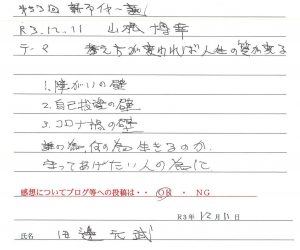 R3.12.11 山根 博幸
テーマ 考え方が変われば人生の質が変る
1.障がいの壁
2.自己投資の壁
3.コロナ禍の壁
誰の為、何の為 生きるのか
守ってあげたい人の為に
感想についてブログ等への投稿は・・ OK ・ NG
R3年 12月11日
氏名